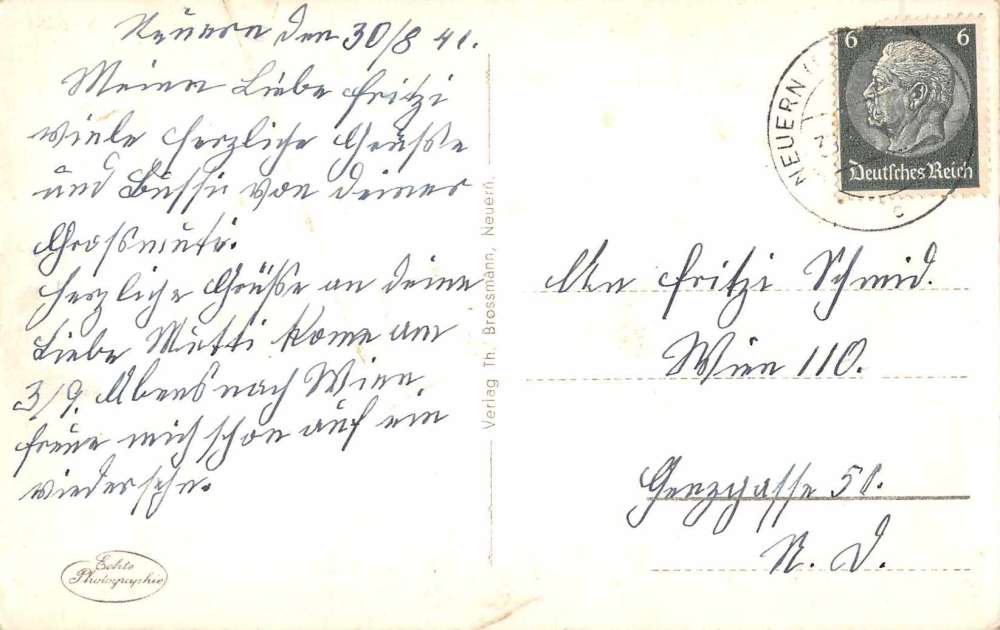 Neuern den 30/8 41.
Meine Liebe Fritzi
viele herzliche Grüße
und Bussi von deiner
Großmutti.
Herzliche Grüße an deine
Liebe Mutti kome am
3/9. Abens nach Wien.
freue mich schon auf ein
wiedersehn.
Echte
Photographie
Verlag Th. Brossmann, Neuern.
NEUERN
6 6
Deutsches Reich
c
An Fritzi Schmid.
Wien 110.
Genzgasse 51.
N. D.